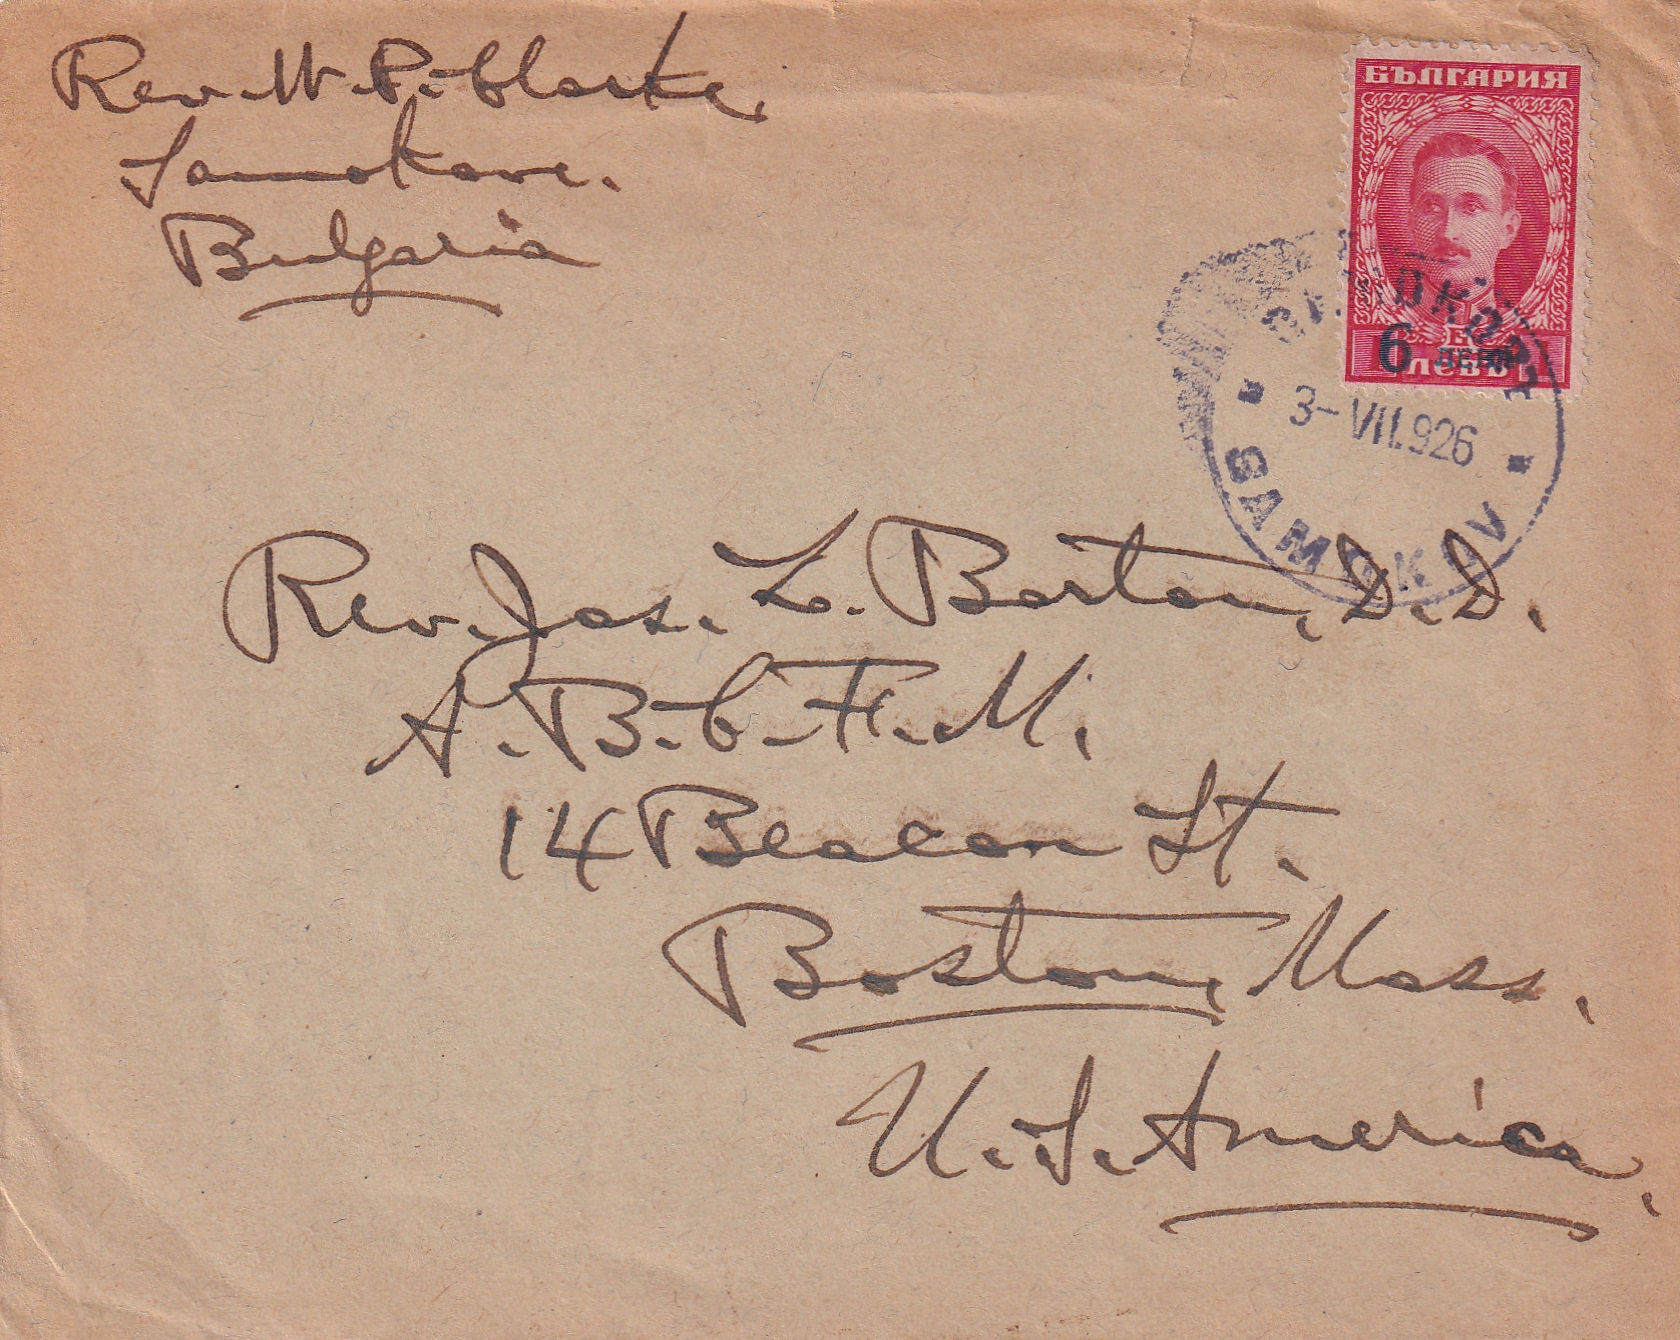 Rev. W. P. Clarke,
Samokove.
Bulgaria
БЪЛГАРИЯ
6 ЛЕВА
ЛЕВЪ
САМОКОВЪ
3-VII.926
SAMOKOV
Rev. Jas. L. Barton, D.D.
A.B.C.F.M.
14 Beacon St.
Boston, Mass.
U.S. America.